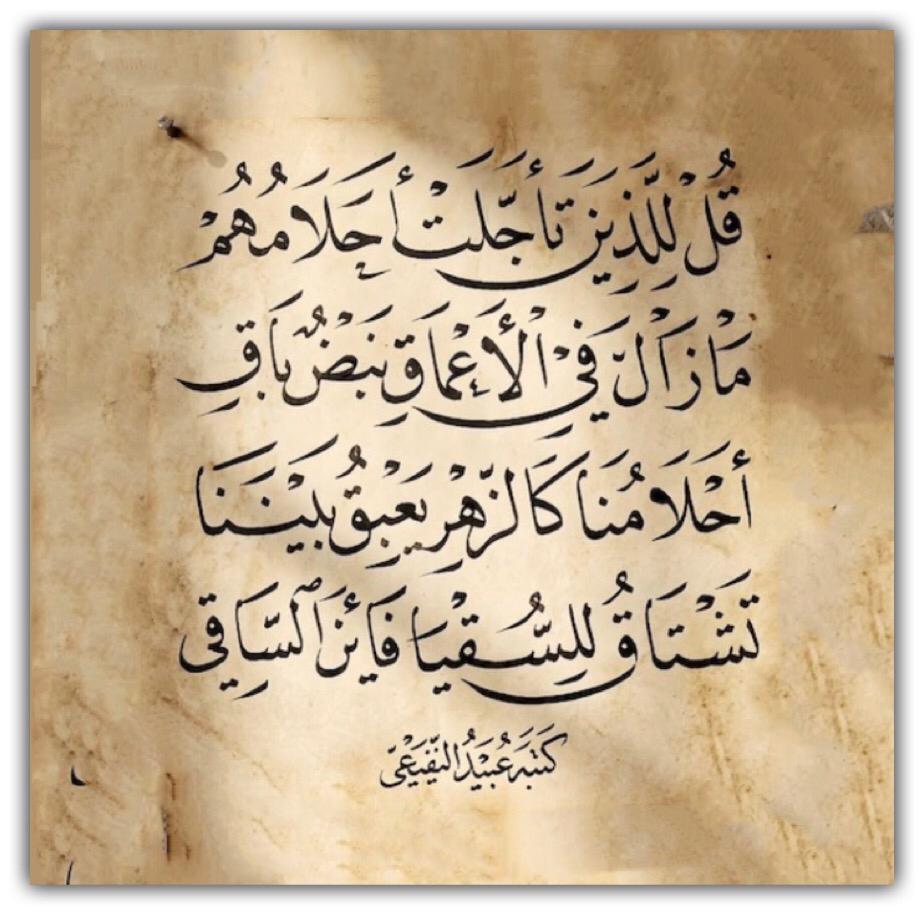 قُلْ لِلَّذِينَ تَأَجَّلَتْ أَحْلَامُهُمْ
مَازَالَ فِي الْأَعْمَاقِ نَبْضٌ بَاقِ
أَحْلَامُنَا كَالزَّهْرِ يَعْبِقُ بَيْنَنَا
تَشْتَاقُ لِلسُّقْيَا فَأَيْنَ السَّاقِي
كَتَبَهُ عُبَيْدُ النُّفَيْعِيّ